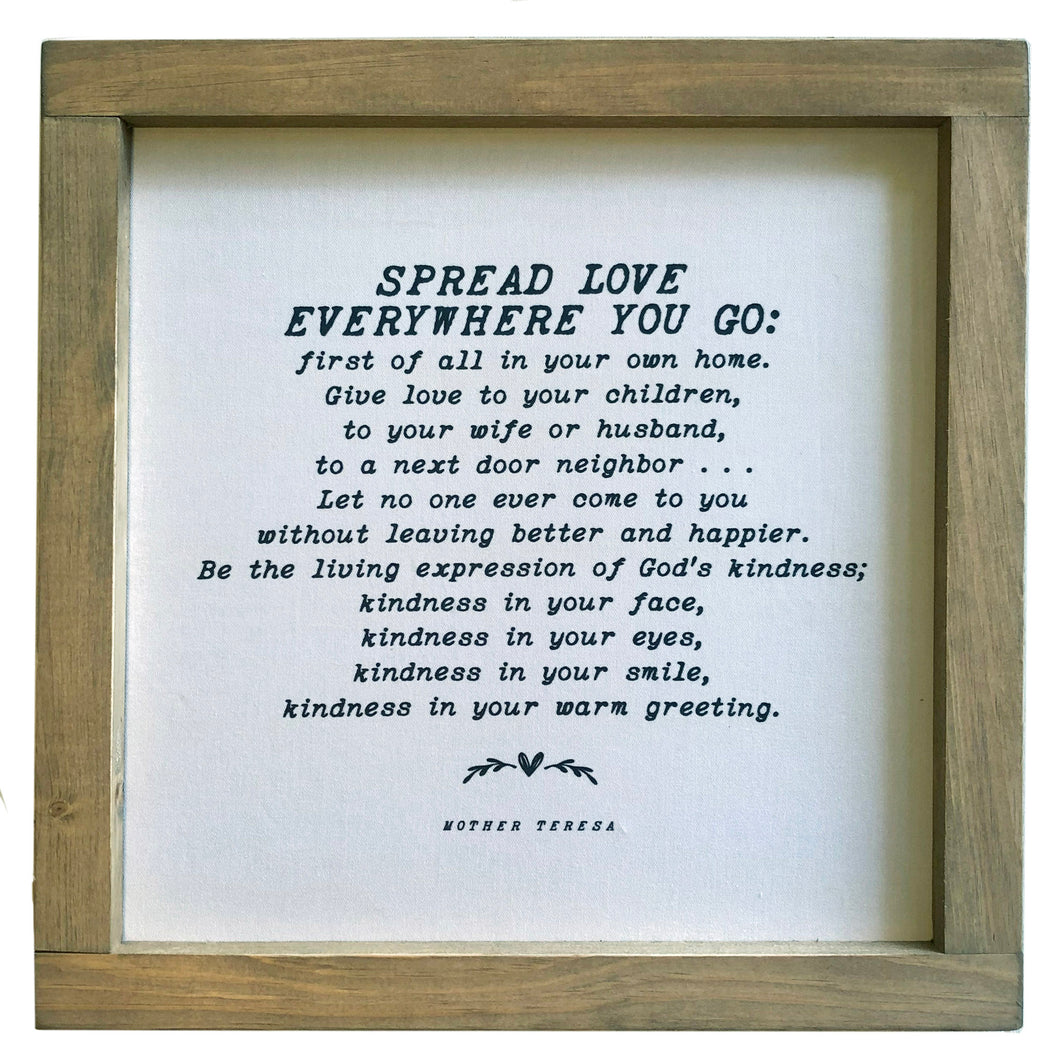 SPREAD LOVE
EVERYWHERE YOU GO:
first of all in your own home.
Give love to your children,
to your wife or husband,
to a next door neighbor . . .
Let no one ever come to you
without leaving better and happier.
Be the living expression of God's kindness;
kindness in your face,
kindness in your eyes,
kindness in your smile,
kindness in your warm greeting.
MOTHER TERESA